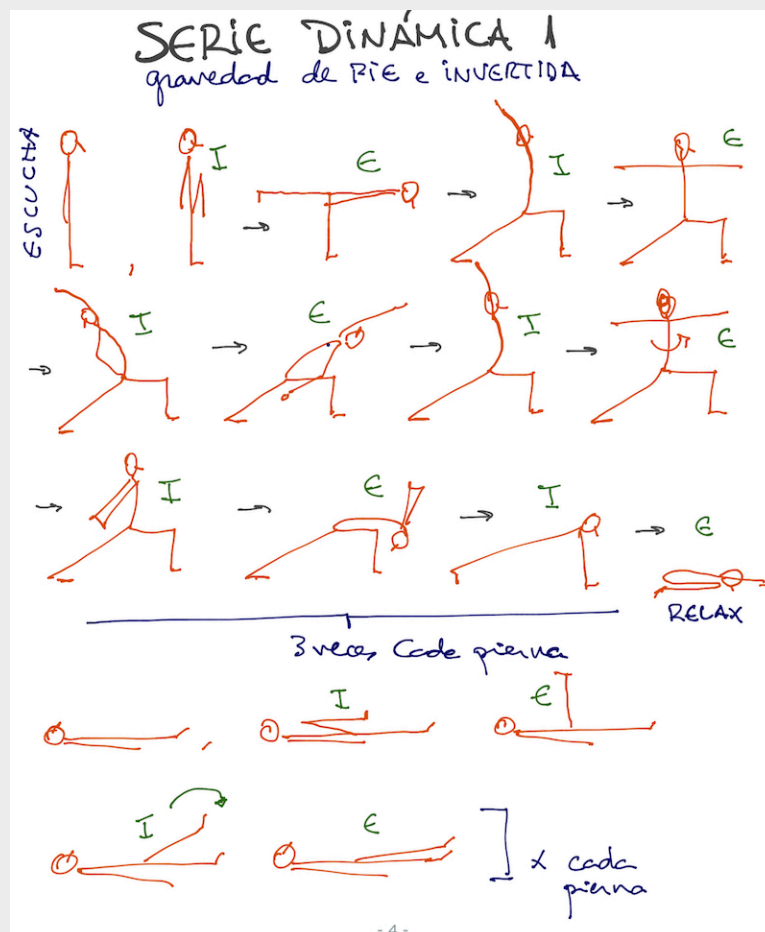 SERIE DINÁMICA 1
gravedad de PIE e INVERTIDA
ESCUCHA
, I
→ E
→ I
→ E
→ I
→ E
→ I
→ E
→ I
→ E
→ I
→ E
RELAX
3 veces Cada pierna
, I
E
I
E
] x cada
pierna
- 4 -